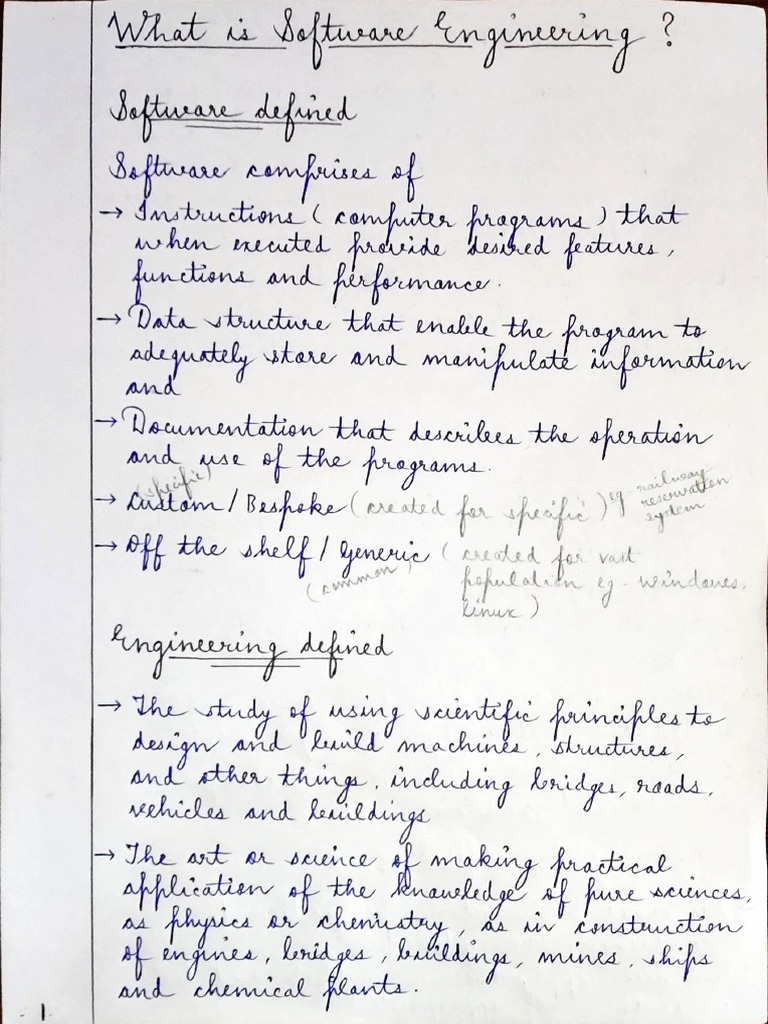 What is Software Engineering ?
Software defined
Software comprises of
→ Instructions ( computer programs ) that
when executed provide desired features,
functions and performance.
→ Data structure that enable the program to
adequately store and manipulate information
and
→ Documentation that describes the operation
and use of the programs.
(specific)
→ Custom / Bespoke ( created for specific ) eg - railway
reservation
system
→ Off the shelf / Generic ( created for vast
(common) population eg - windows,
linux )
Engineering defined
→ The study of using scientific principles to
design and build machines, structures,
and other things, including bridges, roads,
vehicles and buildings
→ The art or science of making practical
application of the knowledge of pure sciences,
as physics or chemistry, as in construction
of engines, bridges, buildings, mines, ships
and chemical plants.
1